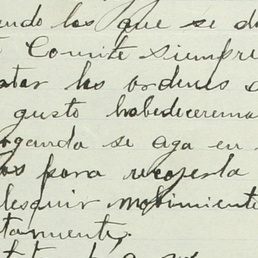 endo los que se d
Comite siempre
atar las ordenes d
gusto habedecerema
organda se aga en
os para recojerla
desquir mobimiente
tamente,